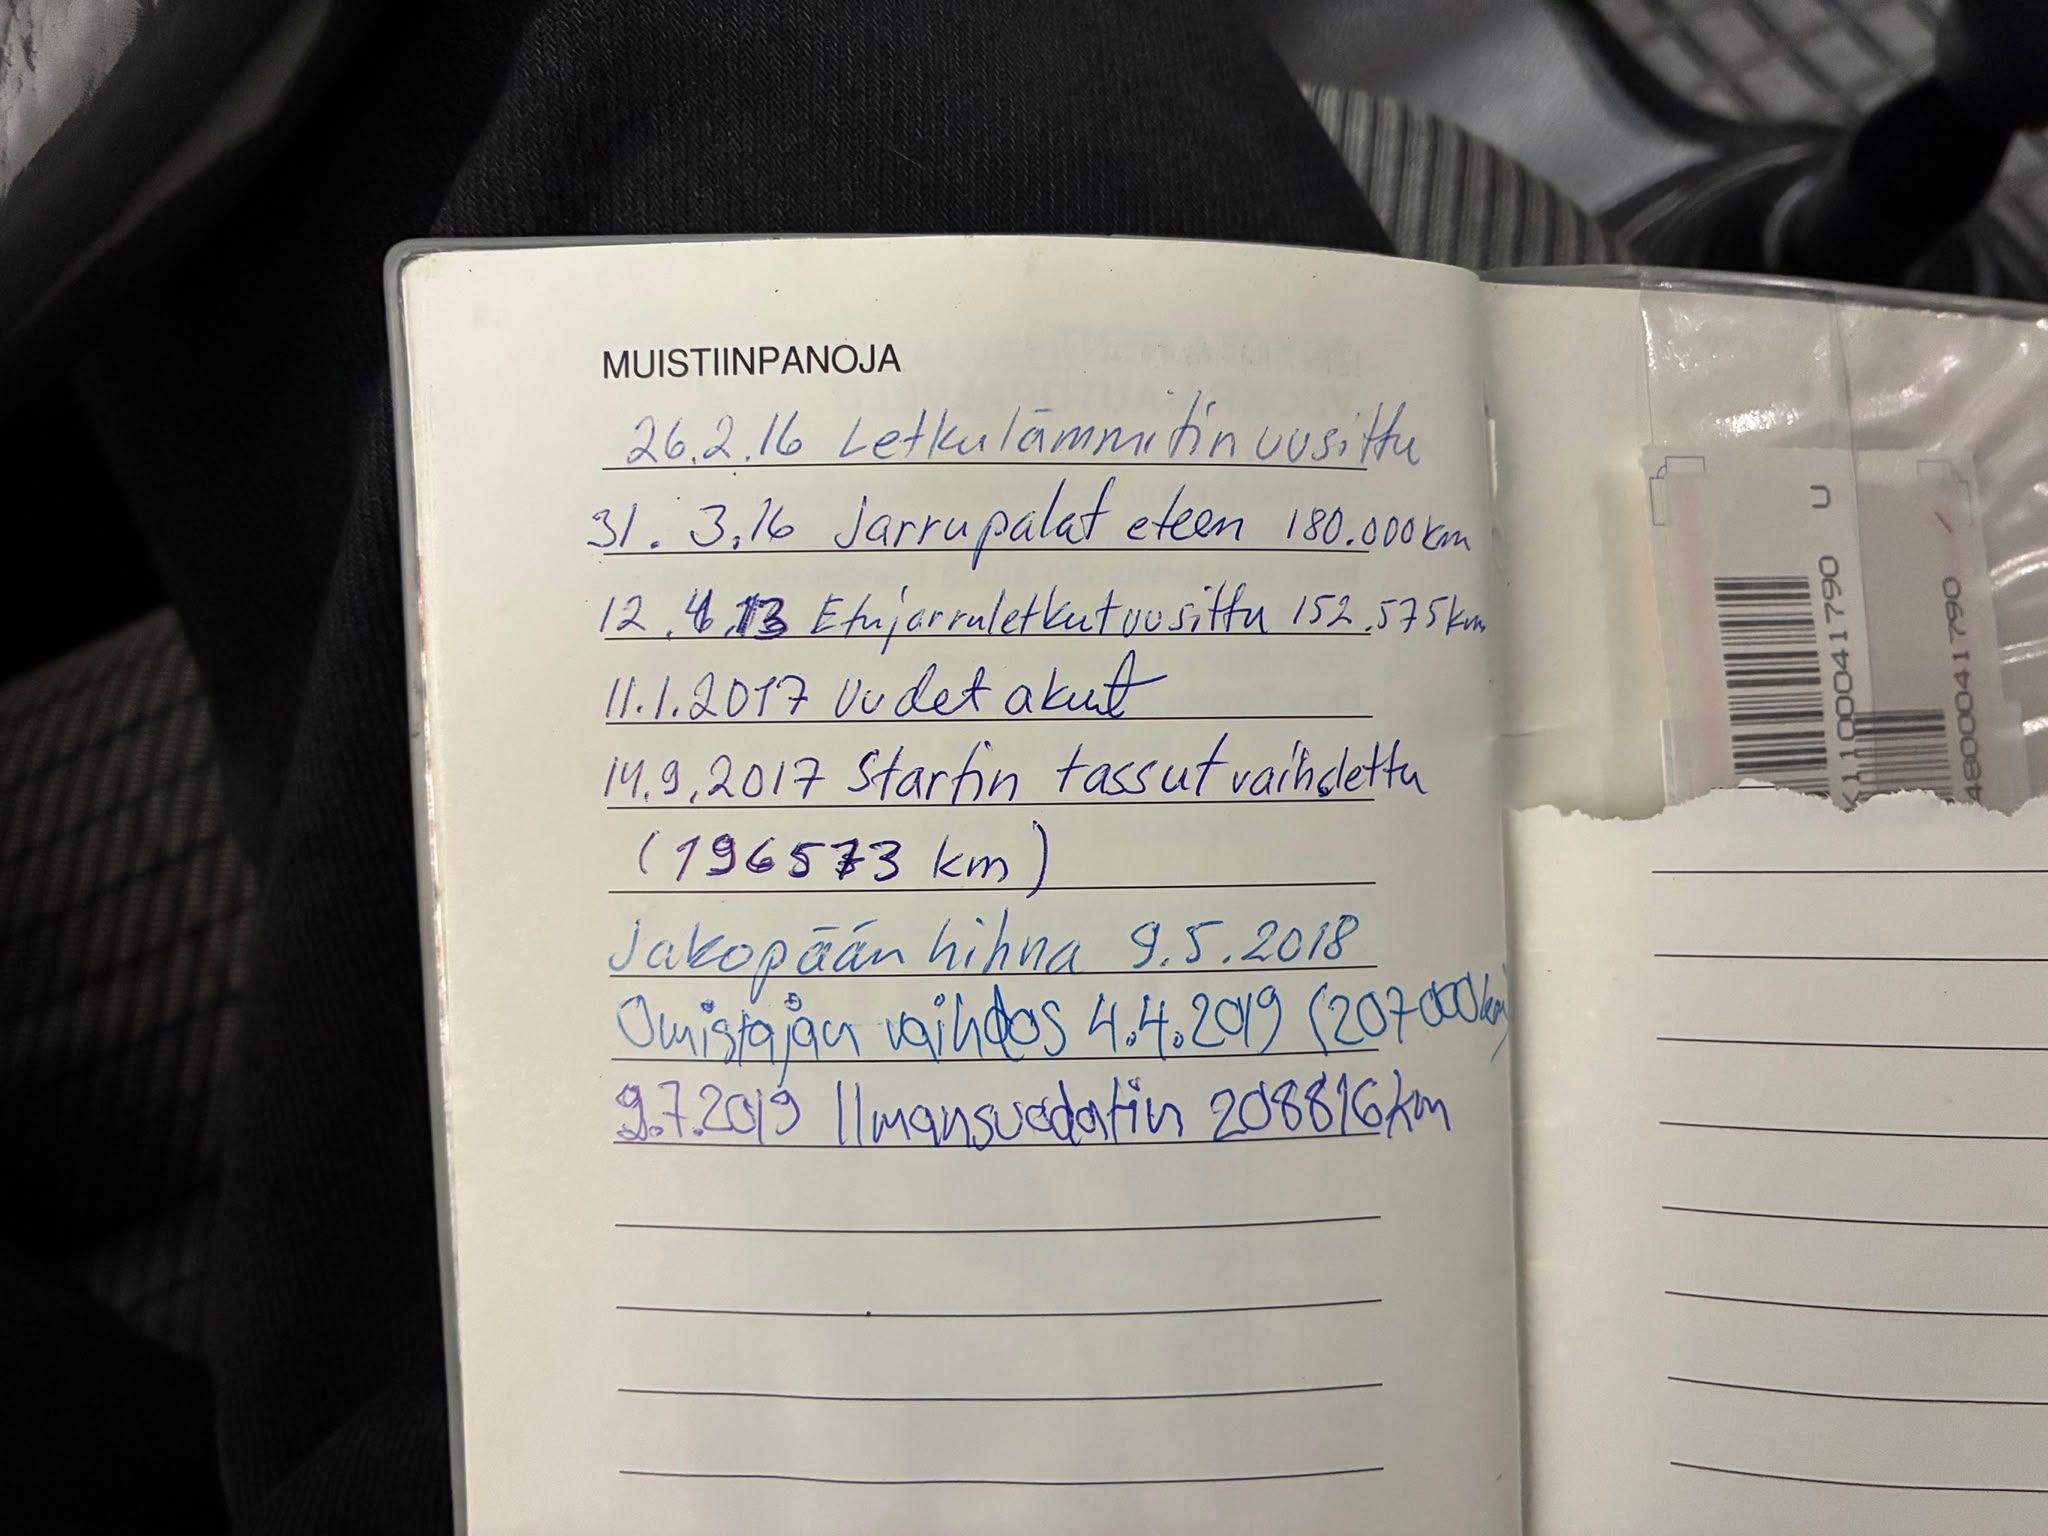 MUISTIINPANOJA
26.2.16 Letkulämmitin uusittu
31. 3.16 Jarrupalat eteen 180.000km
12.4.13 Etujarruletkut uusittu 152.575km
11.1.2017 Uudet akut
14.9.2017 Startin tassut vaihdettu
(196573 km)
Jakopään hihna 9.5.2018
Omistajan vaihdos 4.4.2019 (207000km)
9.7.2019 Ilmansuodatin 208816km
U
K110041790
4800041790